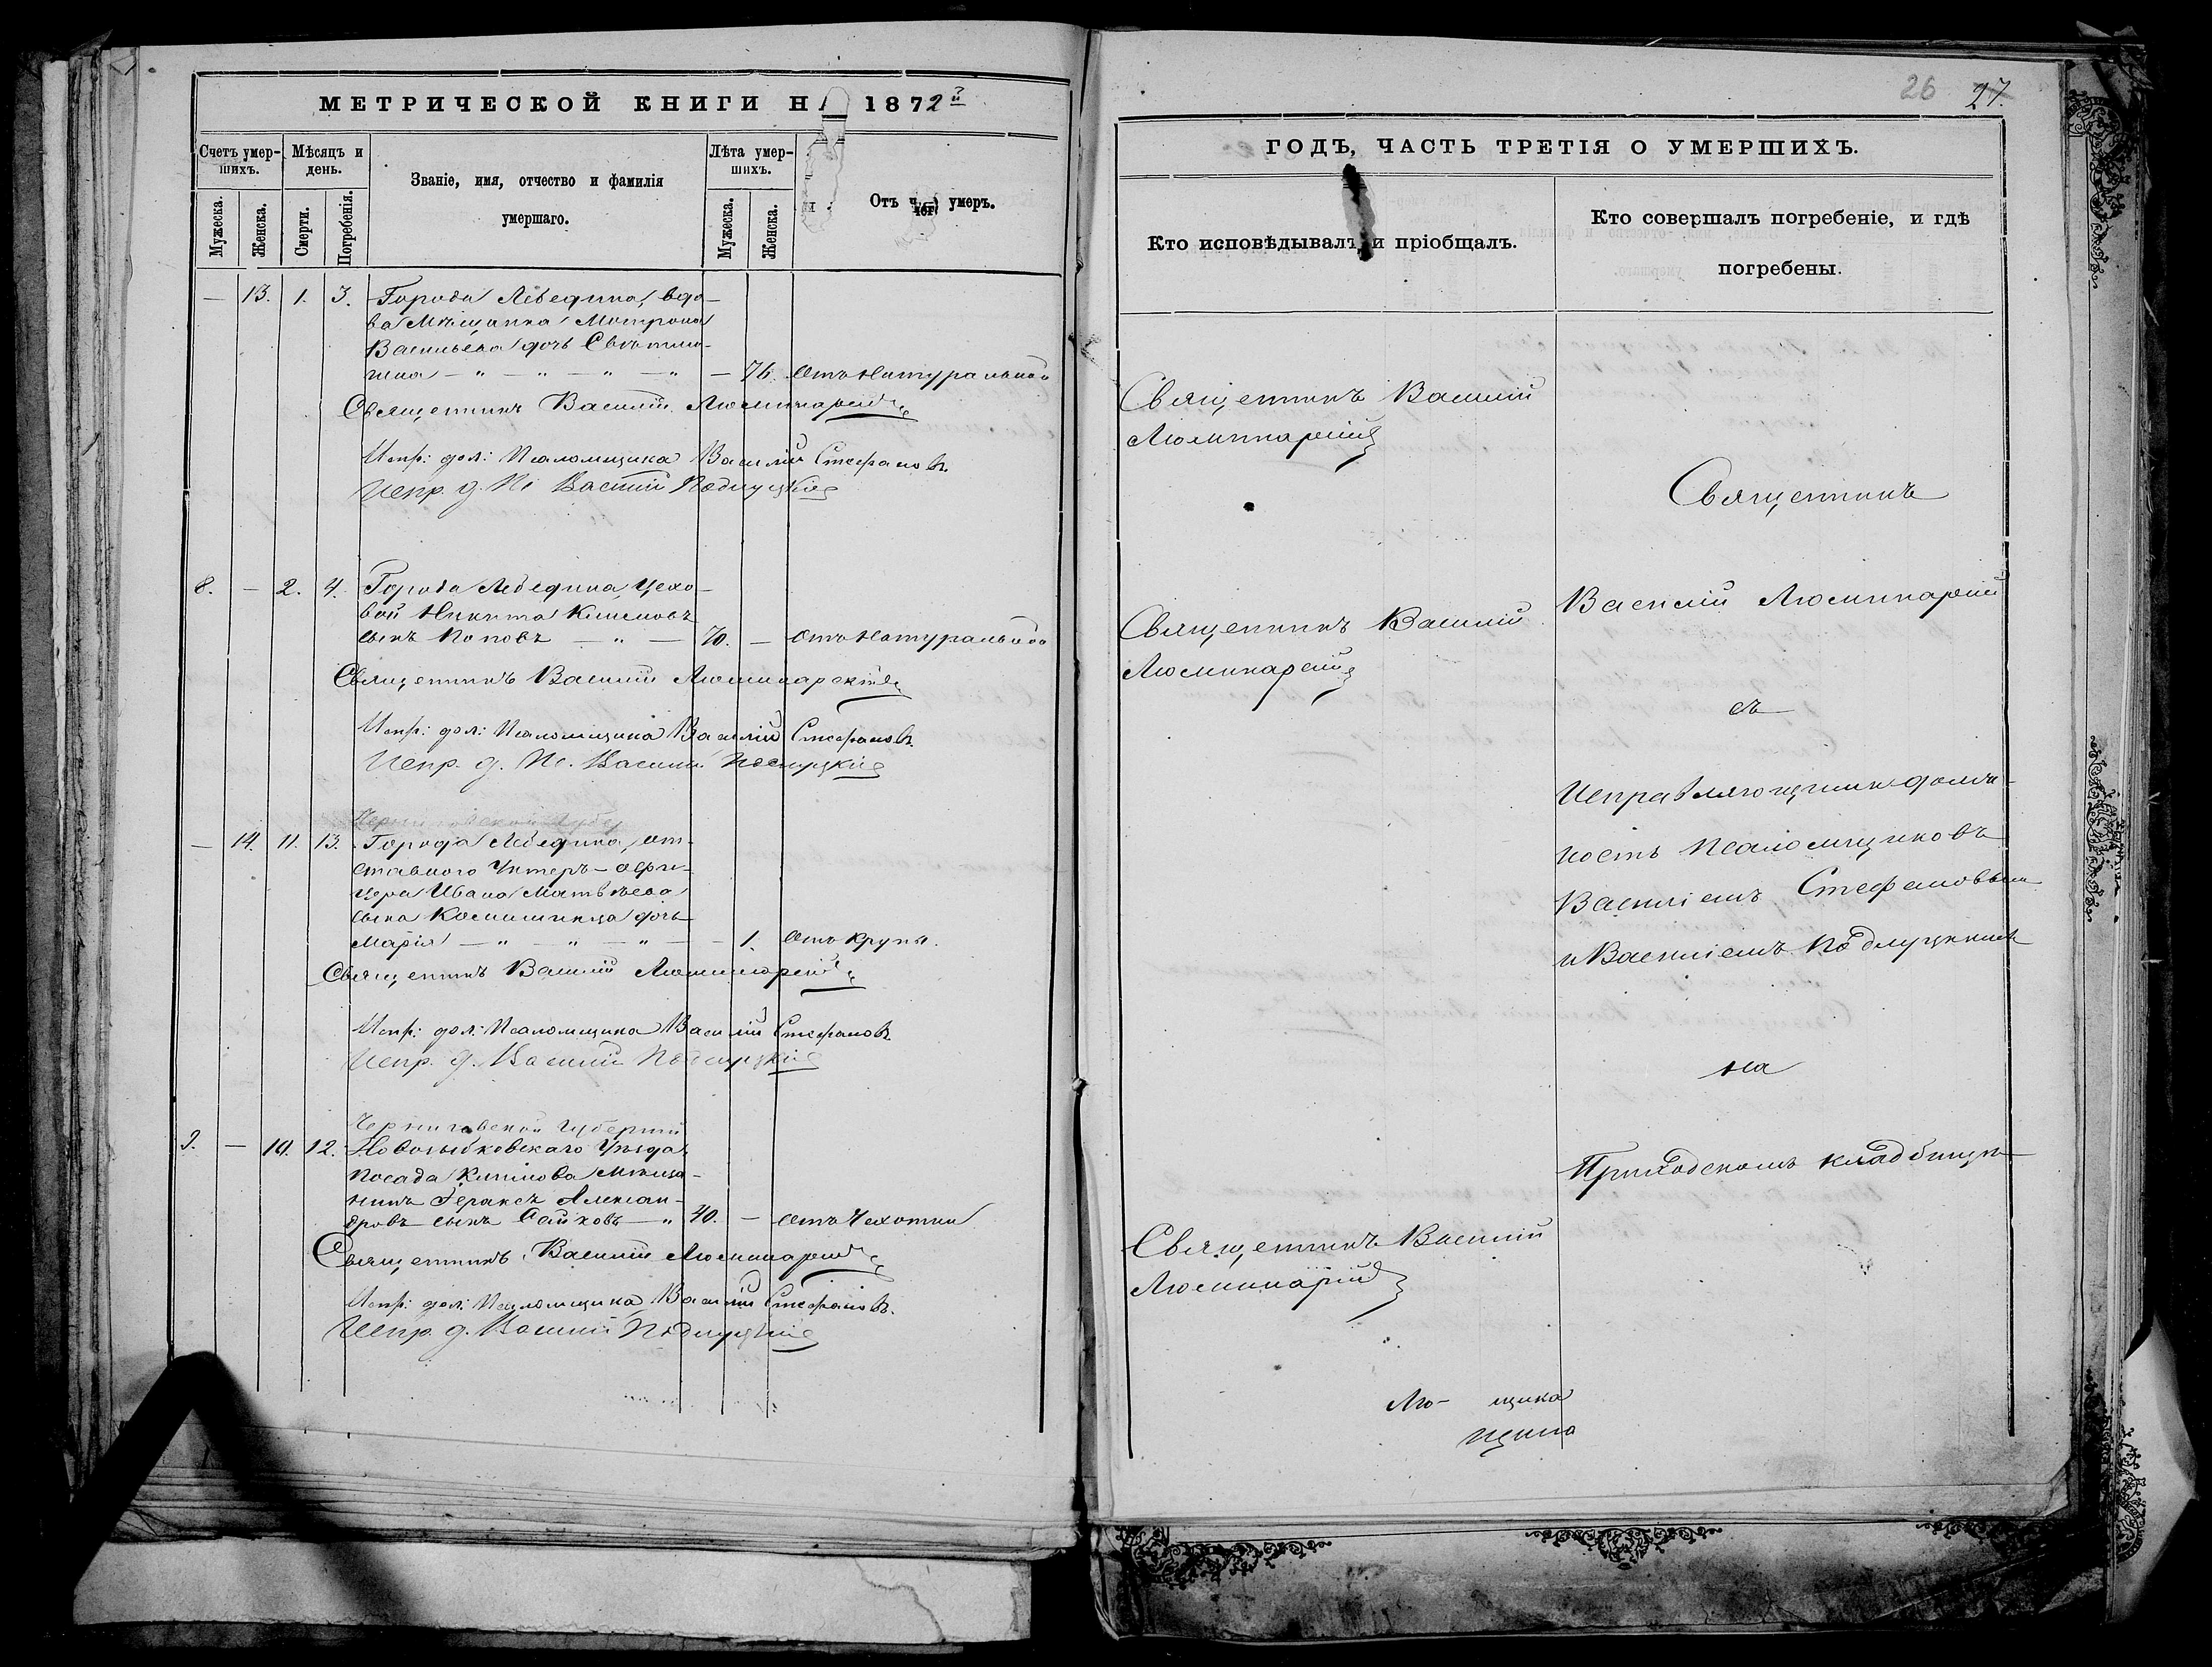 МЕТРИЧЕСКОЙ КНИГИ НА 1872й
Счетъ умер-
шихъ.
Мѣсяцъ и
день.
Званіе, имя, отчество и фамилія
умершаго.
Лѣта умер-
шихъ.
Отъ чего умеръ.
Мужеска.
Женска.
Смерти.
Погребенія.
Мужеска.
Женска.
— 13. 1. 3. Города Лебедина, вдо-
ва Мѣщанка Матрона
Васильева дочь
— 76. Отъ натуральной
Священникъ Василій Люминарскій
Испр: дол: Псаломщика Василій Стефановъ.
Испр. д. Пс Василій Подлуцкій
8. — 2. 4. Города Лебедина, Цехо-
вой Никита
сынъ Поповъ — „ — 70. — Отъ натуральной
Священникъ Василій Люминарскій
Испр: дол: Псаломщика Василій Стефановъ.
Испр. д. Пс. Василій Подлуцкій
— 14. 11. 13. Города Лебедина, от-
ставного Унтеръ-офи-
цера Ивана Матвѣева
сына дочь
Марія — „ — „ — „ — — 1. Отъ крупы.
Священникъ Василій Люминарскій
Испр: дол: Псаломщика Василій Стефановъ
Испр. д. Василій Подлуцкій
Черниговской Губерніи
9. — 10. 12. Новозыбковскаго Уѣзда
Посада Мѣща-
нинъ Александ-
ровъ сынъ — „ 40. — Отъ Чахотки
Священникъ Василій Люминарскій
Испр: дол: Псаломщика Василій Стефановъ.
Испр. д. Василій Подлуцкій
26 27.
ГОДЪ, ЧАСТЬ ТРЕТІЯ О УМЕРШИХЪ.
Кто исповѣдывалъ и пріобщалъ.
Кто совершалъ погребеніе, и гдѣ
погребены.
Священникъ Василій
Люминарскій
Священникъ Василій
Люминарскій
Священникъ Василій
Люминарскій
Лю- щика
щика
Священникъ
Василій Люминарскій
съ
Исправляющими долж-
ность Псаломщиковъ
Василіемъ Стефановымъ
и Василіемъ Подлуцкимъ
на
Приходскомъ кладбищѣ